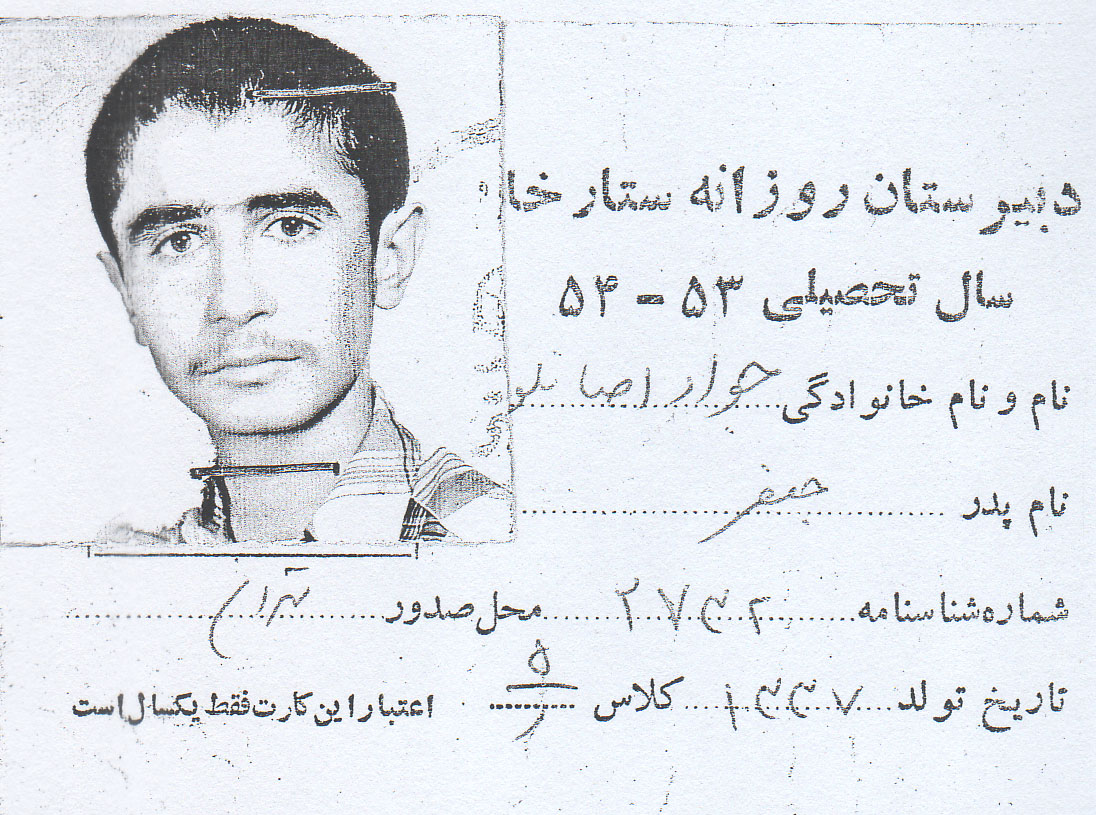 دبیرستان روزانه ستارخا
سال تحصیلی ۵۳ - ۵۴
نام و نام خانوادگی جواد اصانلو
نام پدر جعفر
شماره شناسنامه ۲۷۴۲ محل صدور تهران
تاریخ تولد ۱۳۳۷ کلاس ۵ اعتبار این کارت فقط یکسال است